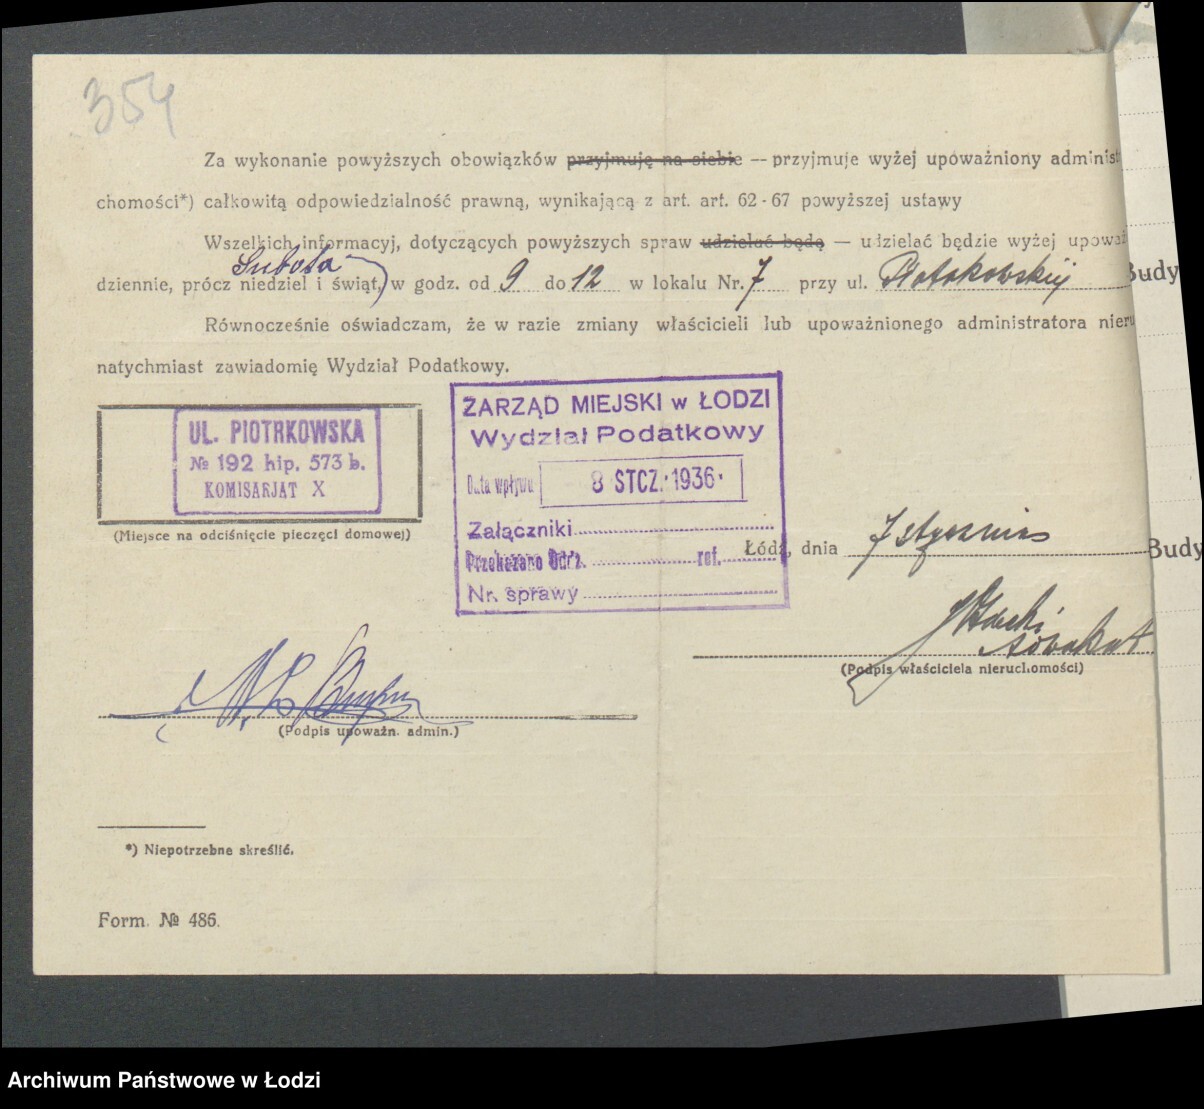 354
Za wykonanie powyższych obowiązków przyjmuję na siebie — przyjmuje wyżej upoważniony administ
chomości*) całkowitą odpowiedzialność prawną, wynikającą z art. art. 62-67 powyższej ustawy
Wszelkich informacyj, dotyczących powyższych spraw udzielać będę — udzielać będzie wyżej upoważ
Sobota
dziennie, prócz niedziel i świąt, w godz. od 9 do 12 w lokalu Nr. 7 przy ul.
Budy
Równocześnie oświadczam, że w razie zmiany właścicieli lub upoważnionego administratora nieru
natychmiast zawiadomię Wydział Podatkowy.
UL. PIOTRKOWSKA
№ 192 hip. 573 b.
KOMISARJAT X
(Miejsce na odciśnięcie pieczęci domowej)
ZARZĄD MIEJSKI w ŁODZI
Wydział Podatkowy
Data wpływu 8 STCZ. 1936
Załączniki
Przekazano Odz. ref.
Nr. sprawy
Łódź, dnia 7 stycznia
Budy
Adwokat
(Podpis właściciela nieruchomości)
(Podpis upoważn. admin.)
*) Niepotrzebne skreślić.
Form. № 486.
Archiwum Państwowe w Łodzi